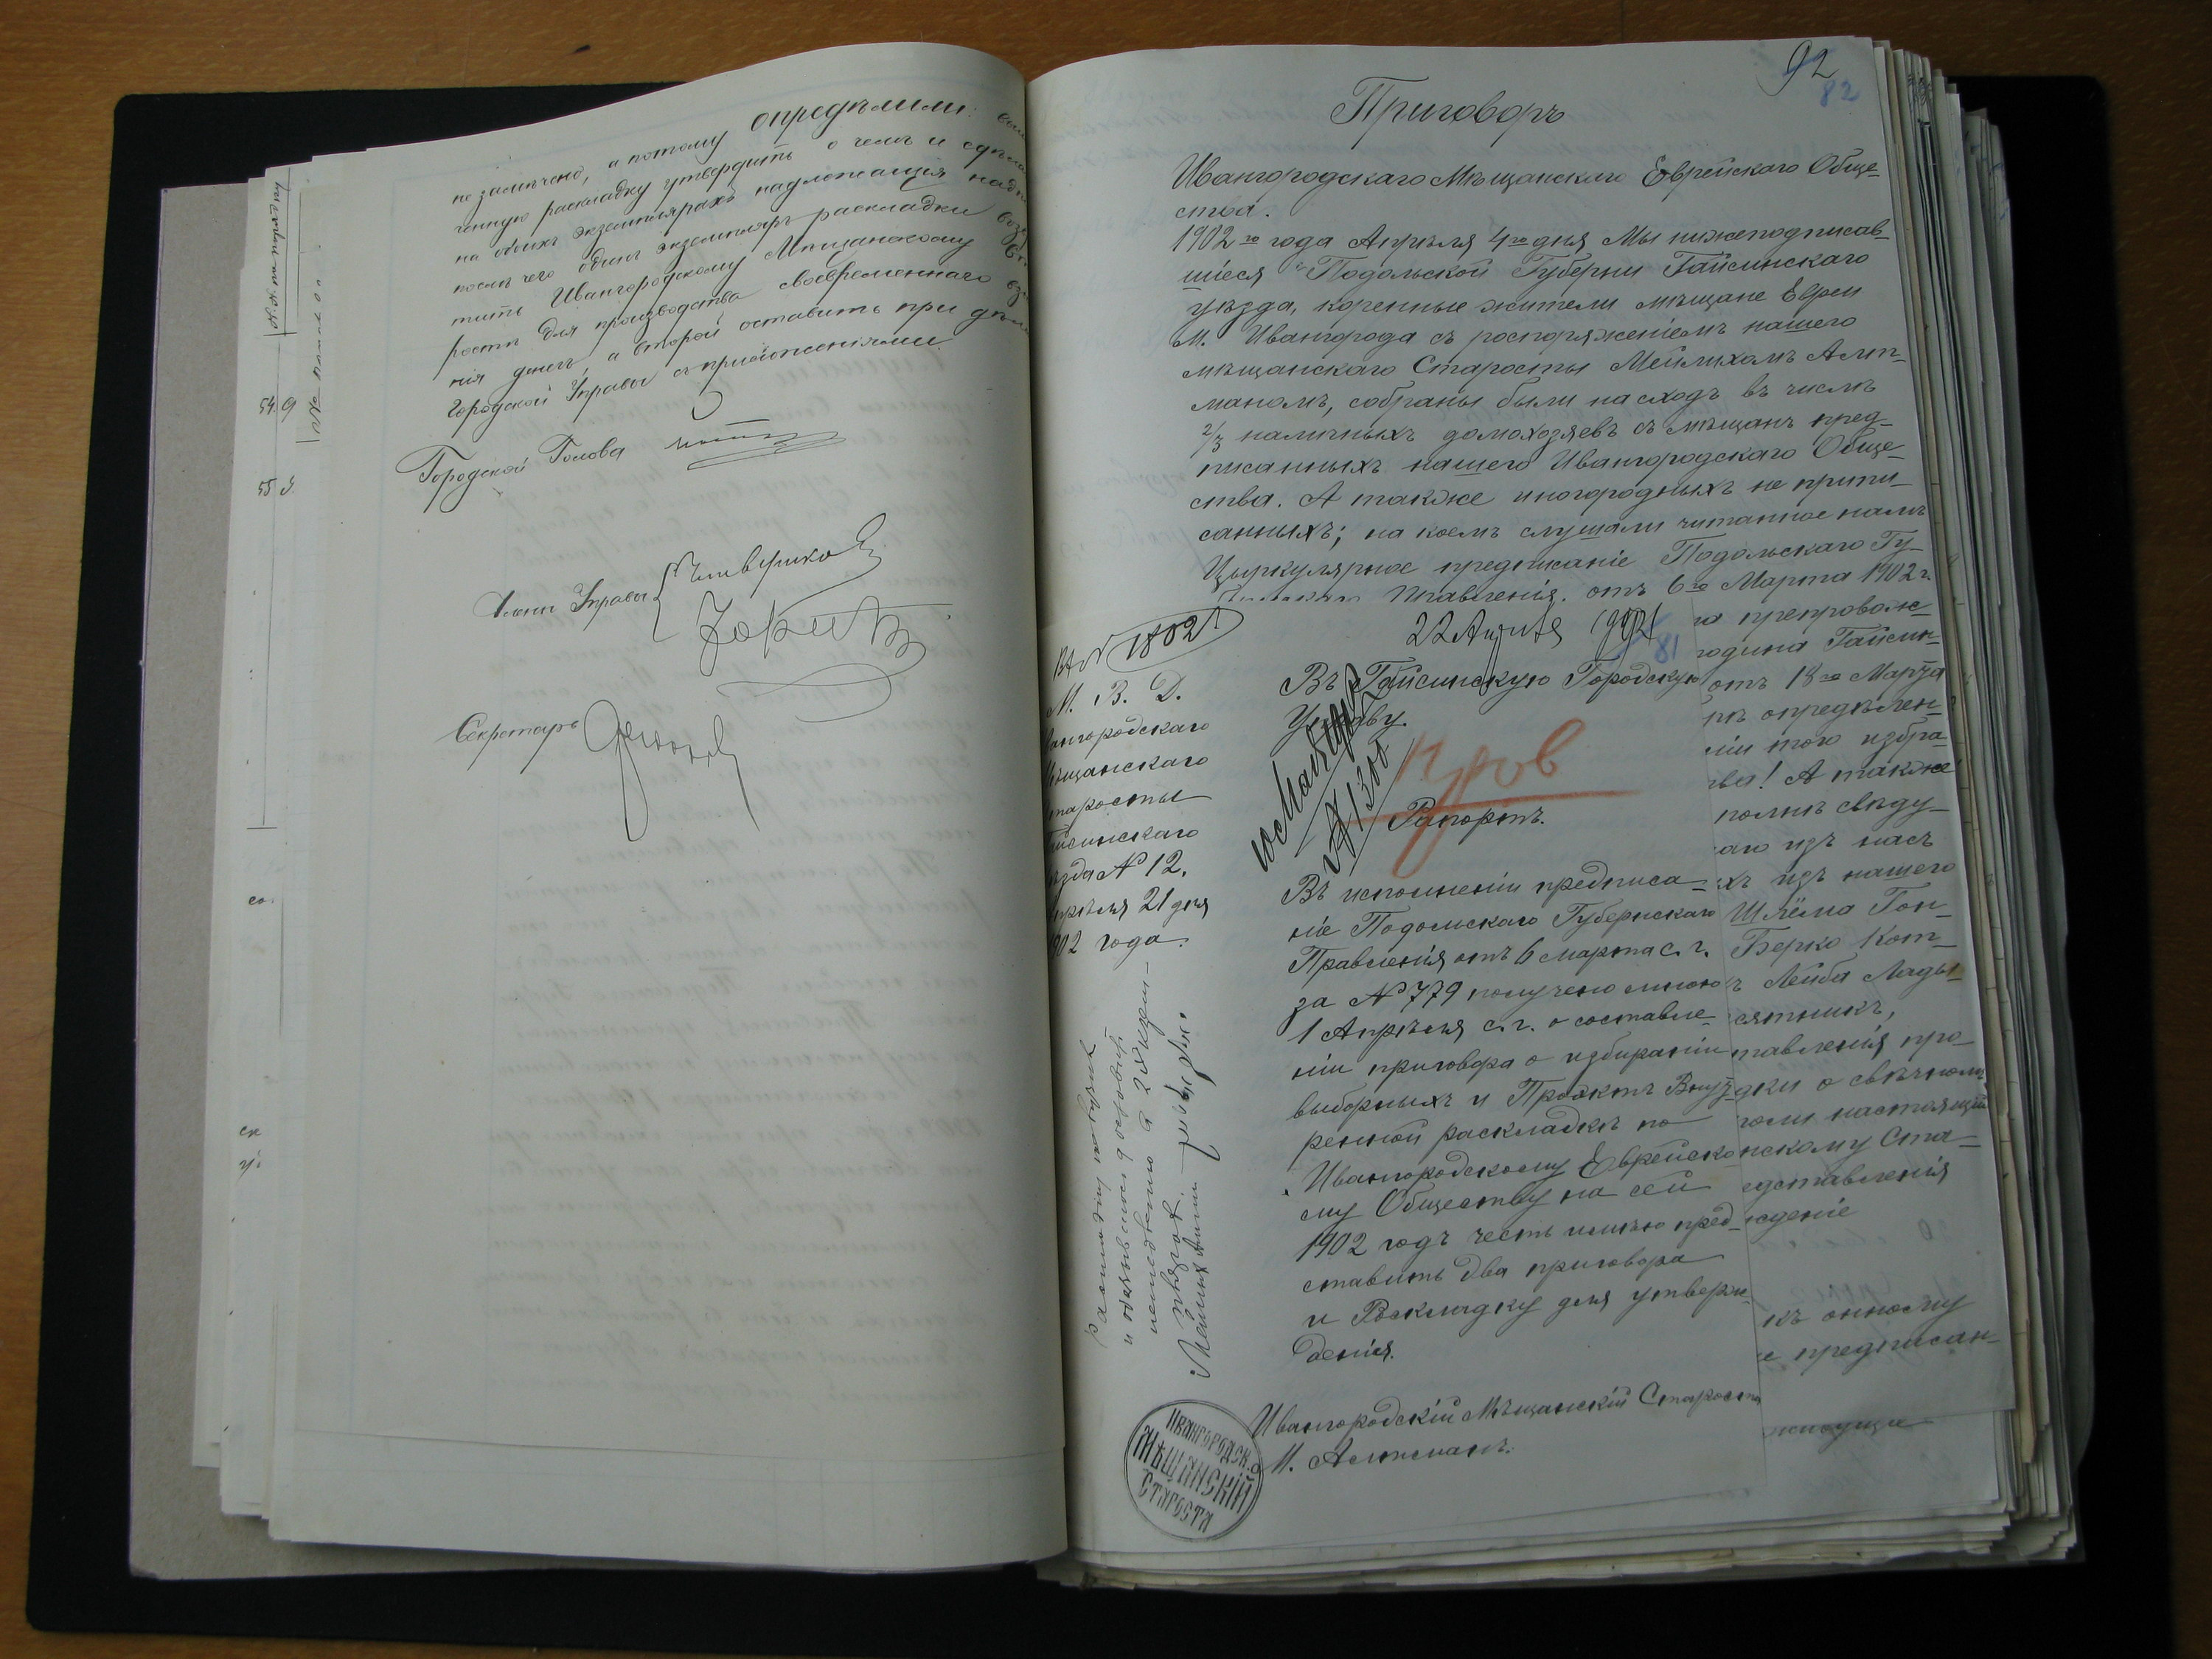 не замѣчено, а потому опредѣлили:
ченную раскладку утвердить о чемъ и сдѣла
на обоихъ экземплярахъ надлежащія надп
послѣ чего одинъ экземпляръ раскладки
тить Ивангородскому Мѣщанскому
росты для производства своевременнаго
нія денегъ, а второй оставить при дѣл
Городской Управы съ приложеніями.
Городской Голова
Члены Управы
Секретарь
54. 9
55
92
82
Приговоръ
Ивангородскаго Мѣщанскаго Еврейскаго Обще-
ства.
1902го года Апрѣля 4го дня Мы нижеподписав-
шіеся Подольской Губерніи Гайсинскаго
уѣзда, коренные жители мѣщане Евреи
М. Ивангорода съ роспоряженіемъ нашего
мѣщанскаго Старосты Мейлихомъ Альт-
маномъ, собраны были на сходъ въ числѣ
2/3 наличныхъ домохозяевъ съ мѣщанъ пред-
писанныхъ нашего Ивангородскаго Обще-
ства. А также иногородныхъ не припи-
санныхъ; на коемъ слушали читанное намъ
Цыркулярное предписаніе Подольскаго Гу-
Правленія. отъ 6го Марта 1902 г.
на препровож-
родина Гайсин-
отъ 18го Марта
опредѣлен-
тою избра-
ства! А также
полнѣ свѣду-
изъ насъ
хъ изъ нашего
Шлёма Гоп-
Берко Кот-
Лейба Лады-
сятникъ,
тавленія про-
дки о свѣчномъ
настоящій
нскому Ста-
едставленія
жденіе
къ онному
е предписан-
1802
М. В. Д.
вангородскаго
ѣщанскаго
таросты
айсинскаго
ѣзда № 12.
прѣля 21 дня
902 года.
22 Апрѣля 1902
81
Въ Гайсинскую Городскую
Управу.
№ 1300
Пров
Рапортъ.
Въ исполненіи предписа-
ніе Подольскаго Губернскаго
Правленія отъ 6 марта с. г.
за № 779 получено мною
1 Апрѣля с. г. о составле-
ніи приговора о избираніи
выборныхъ и Проэктъ Внут-
ренной раскладкѣ по
Ивангородскому Еврейско-
му Обществу на сей
1902 годъ честь имѣю пред-
ставить два приговора
и Раскладку для утверж-
денія.
Ивангородскій Мѣщанскій Староста
М. Альтманъ.
ИВАНГОРОДСК.
МѢЩАНСКІЙ
СТАРОСТА